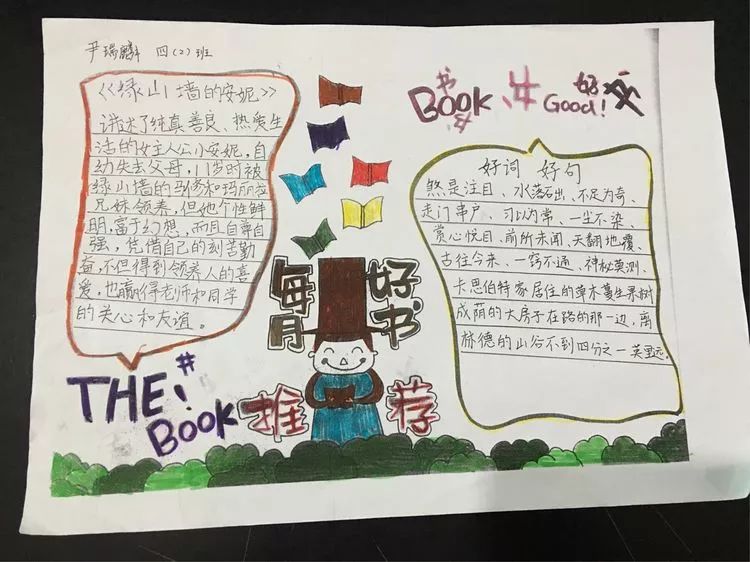 尹瑞麟 四(2)班
《绿山墙的安妮》
讲述了纯真善良、热爱生
活的女主人公小安妮，自
幼失去父母，11岁时被
绿山墙的马修和玛丽拉
兄妹领养，但她个性鲜
明，富于幻想，而且自尊自
强，凭借自己的刻苦勤
奋，不但得到领养人的喜
爱，也赢得老师和同学
的关心和友谊。
THE！#
BOOK
每月
好书
推荐
书
BOOK
好
Good!
好词 好句
煞是注目、水落石出、不足为奇、
走门串户、习以为常、一尘不染、
赏心悦目、前所未闻、天翻地覆、
古往今来、一窍不通、神秘莫测、
卡思伯特家居住的草木蔓生果树
成荫的大房子在路的那一边，离
林德的山谷不到四分之一英里远。